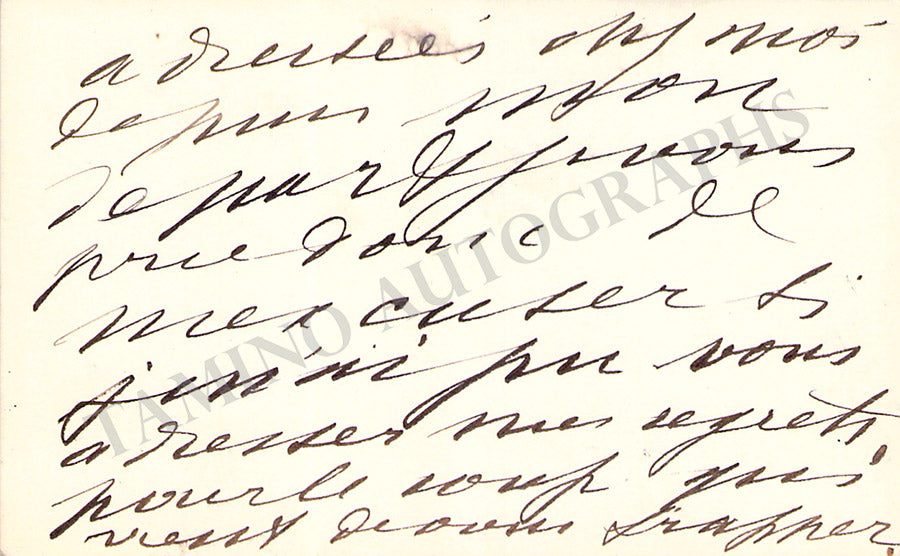 adressées chez moi
depuis mon
départ Je vous
prie donc de
m'excuser si
je n'ai pu vous
adresser mes regrets
pour le coup qui
vient de vous frapper.
TAMINO AUTOGRAPHS